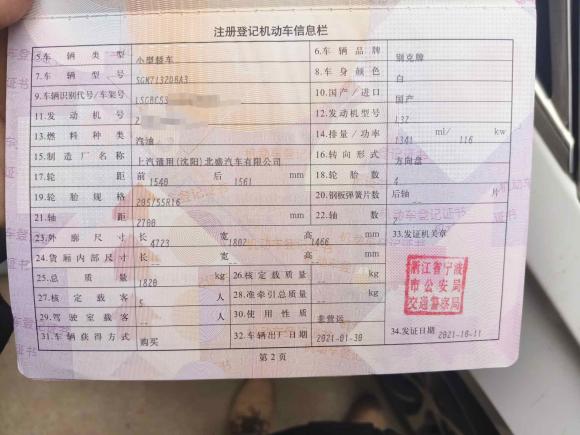 注册登记机动车信息栏
5.车辆类型 小型轿车 6.车辆品牌 别克牌
7.车辆型号 8.车身颜色 白
9.车辆识别代号/车架号 10.国产/进口 国产
11.发动机号 12.发动机型号
13.燃料种类 汽油 14.排量/功率 1341 ml/ 116 kw
15.制造厂名称 上汽通用(沈阳)北盛汽车有限公司 16.转向形式 方向盘
17.轮距 前 1540 后 1561 mm 18.轮胎数 4
19.轮胎规格 205/55R16 20.钢板弹簧片数 后轴 -- 片
21.轴距 2700 mm 22.轴数 2
23.外廓尺寸 长 4723 宽 1802 高 1466 mm 33.发证机关章
24.货厢内部尺寸 长 -- 宽 -- 高 -- mm
25.总质量 1820 kg 26.核定载质量 -- kg
27.核定载客 5 人 28.准牵引总质量 -- kg
29.驾驶室载客 -- 人 30.使用性质 非营运
31.车辆获得方式 购买 32.车辆出厂日期 2021-01-30 34.发证日期 2021-10-11
浙江省宁波
市公安局
交通警察局
第2页